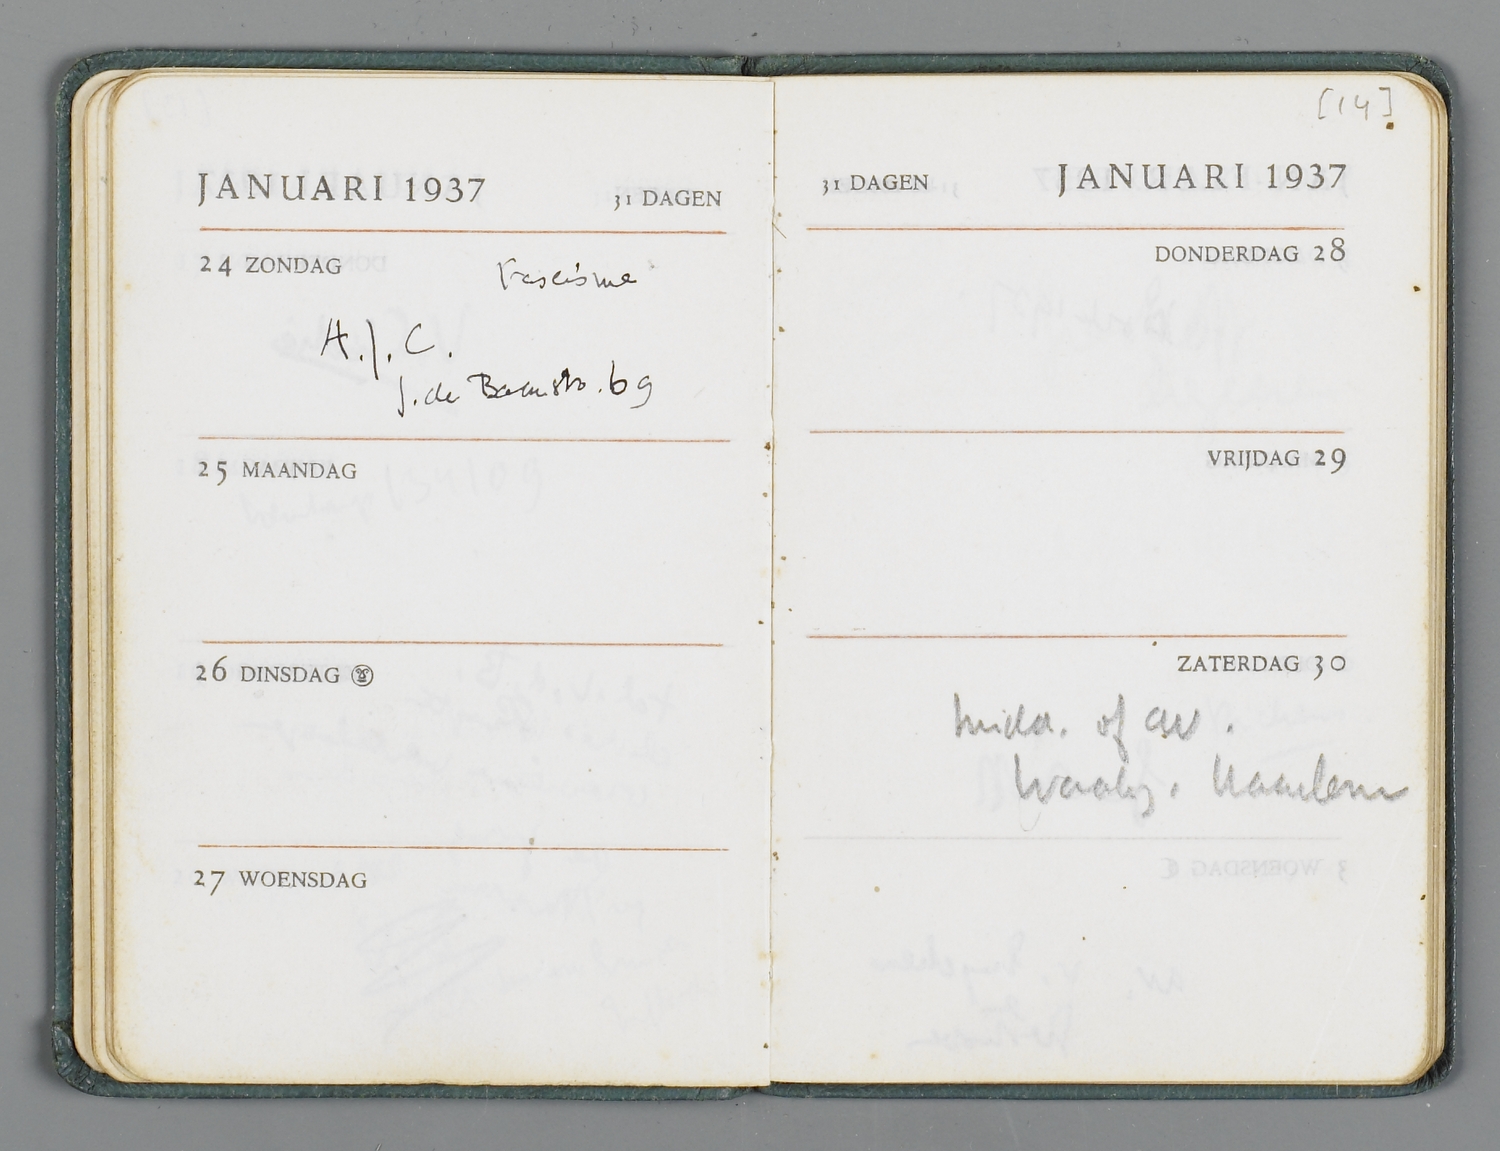 JANUARI 1937
31 DAGEN
24 ZONDAG
Fascisme
A.J.C.
J. de
69
25 MAANDAG
26 DINSDAG
27 WOENSDAG
[14]
31 DAGEN
JANUARI 1937
DONDERDAG 28
VRIJDAG 29
ZATERDAG 30
midd. of av.
Haarlem